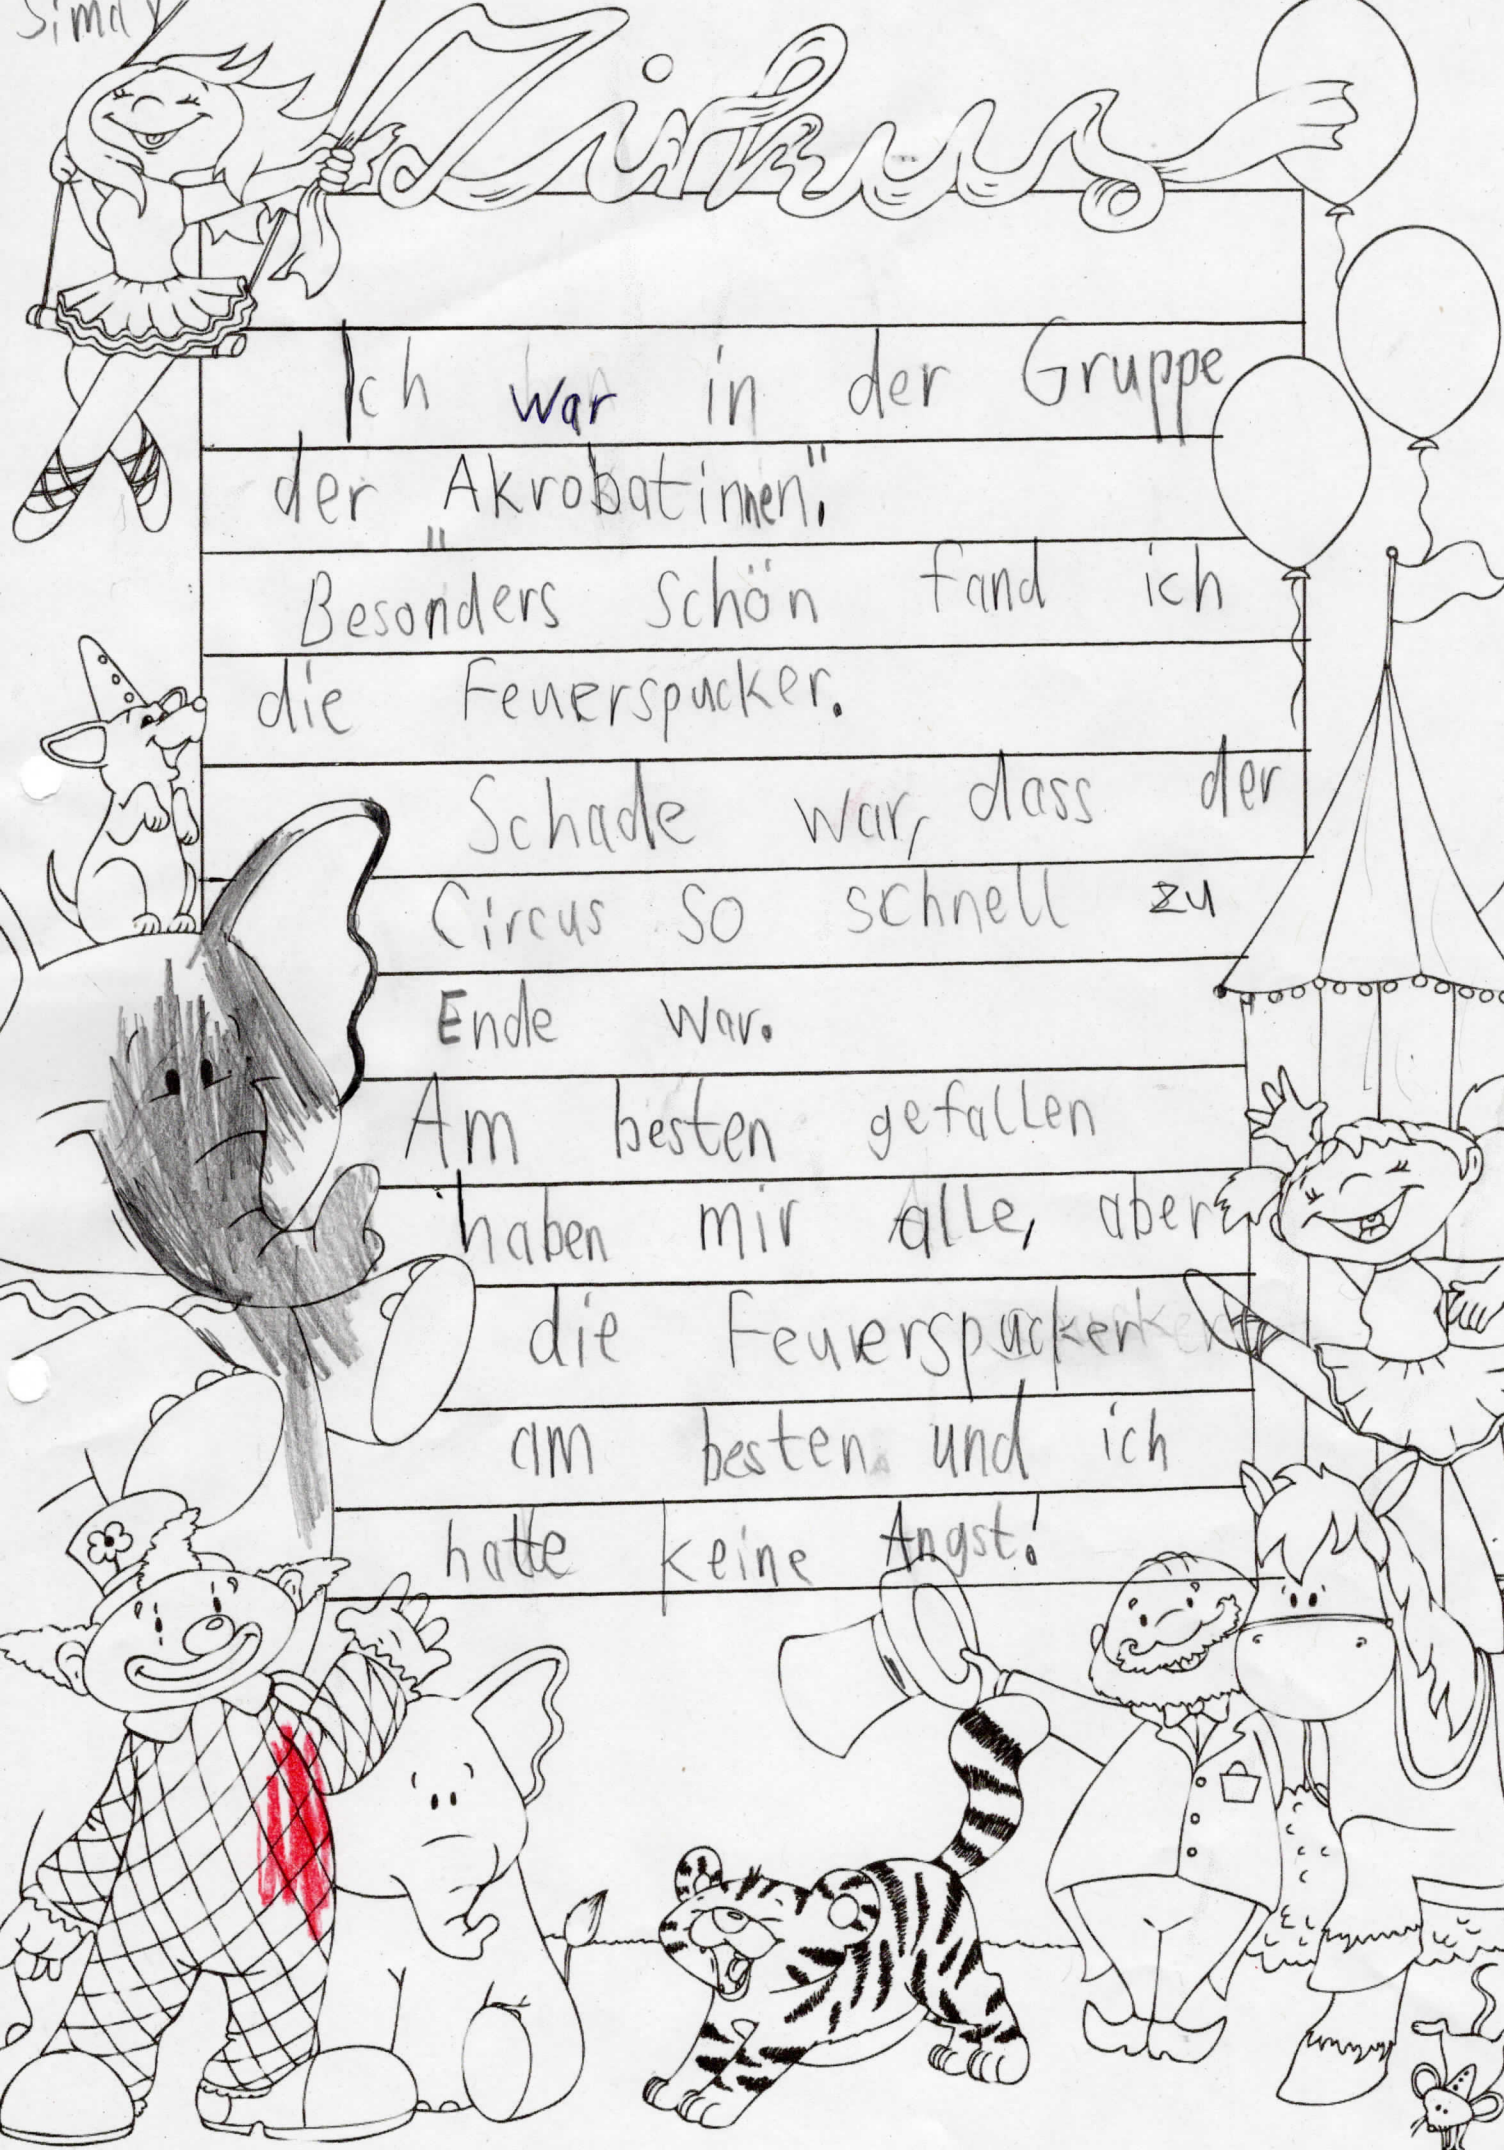 Simay
Zirkus
Ich war in der Gruppe
der „Akrobatinnen".
Besonders schön fand ich
die Feuerspucker.
Schade war, dass der
Circus so schnell zu
Ende war.
Am besten gefallen
haben mir alle, aber
die Feuerspucker
am besten und ich
hatte keine Angst!